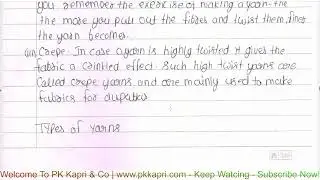 you remember the exercise of making a yarn. the
the more you pull out the fibres and twist them, finer
the yarn becomes.
Crepe: In case a yarn is highly twisted it gives the
fabric a crinkled effect. Such high twist yarns are
called crepe yarns and are mainly used to make
fabrics for dupattas
Types of yarns
Welcome To PK Kapri & Co | www.pkkapri.com - Keep Watcing - Subscribe Now!